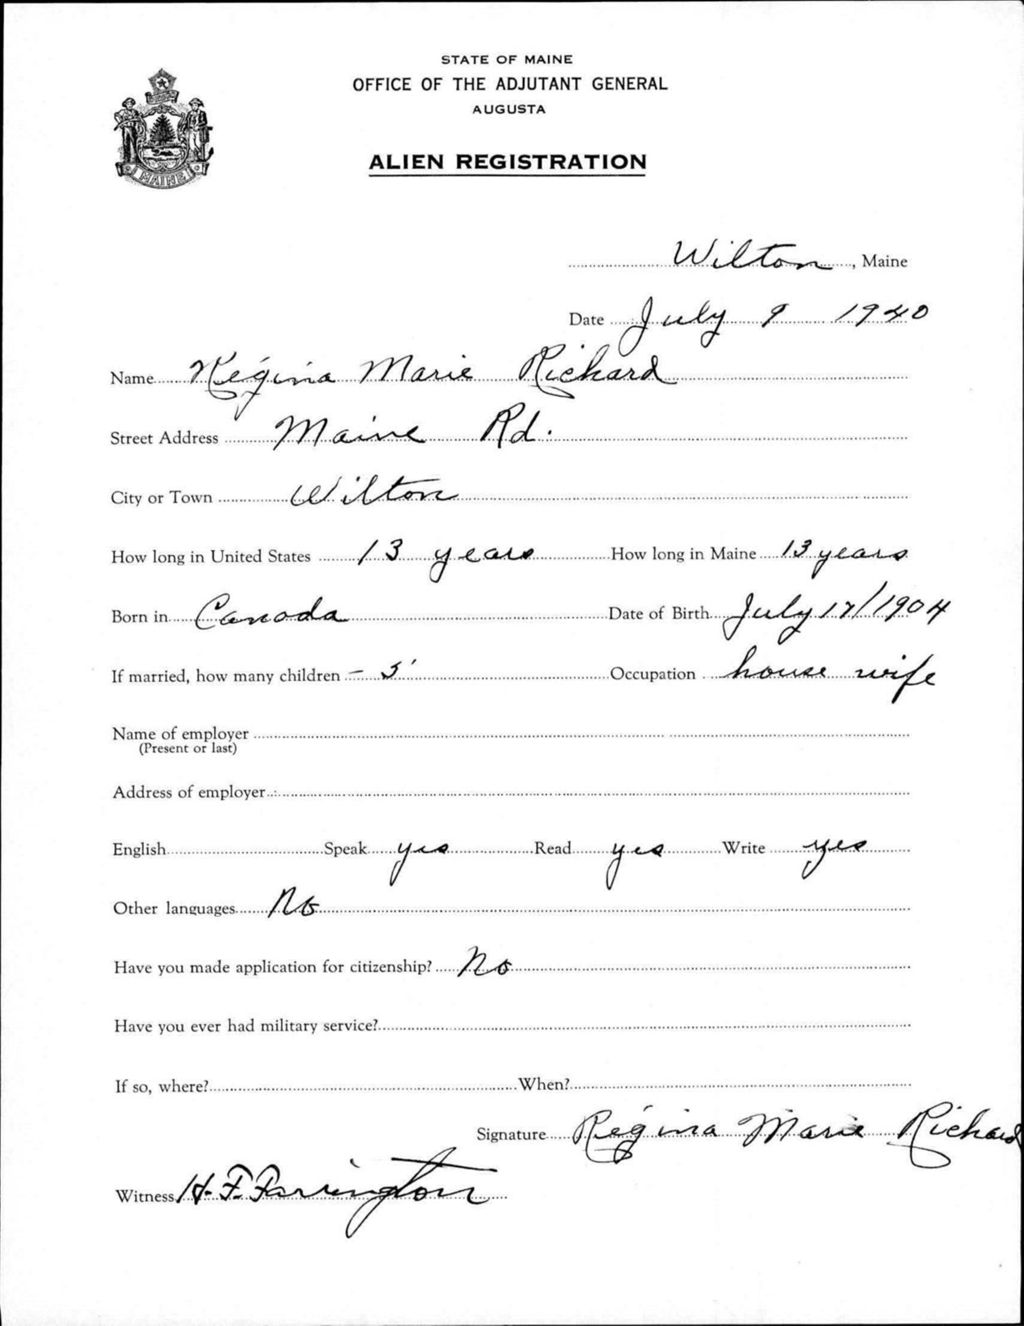 STATE OF MAINE
OFFICE OF THE ADJUTANT GENERAL
AUGUSTA
ALIEN REGISTRATION
MAINE
Wilton, Maine
Date July 9 1940
Name Regina Marie Richard
Street Address Maine Rd.
City or Town Wilton
How long in United States 13 years How long in Maine 13 years
Born in Canada Date of Birth July 17/1904
If married, how many children - 5 Occupation house wife
Name of employer
(Present or last)
Address of employer
English Speak yes Read yes Write yes
Other languages No
Have you made application for citizenship? No
Have you ever had military service?
If so, where? When?
Signature Regina Marie Richard
Witness H. F. Farrington